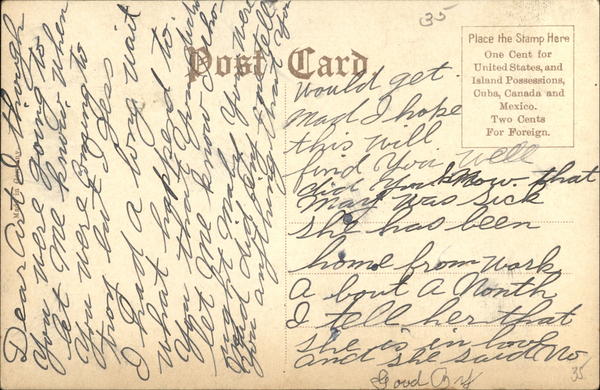 35
Post Card
Place the Stamp Here
One Cent for
United States, and
Island Possessions,
Cuba, Canada and
Mexico.
Two Cents
For Foreign.
Dear Art I through
You were going to
let me know when
You were going to
but I Gess
I had a long wait
what happed to
You that You did
let me know
You were
mad did
You anything that You
would get
mad I hope
this will
find You well
did You know that
Mary was sick
she has been
home from work
A bout A Month
I tell her that
she is in love
and she said No
Good By
35